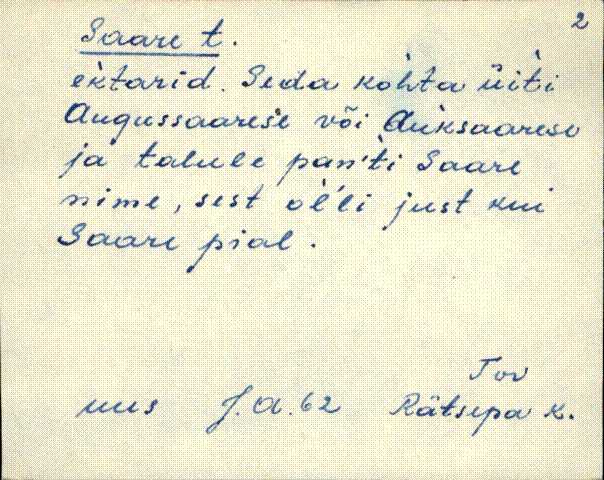 2
Saare t.
ektarid. Seda kohta üiti
Augussaarese või Auksaarese
ja talule pan'ti Saare
nime, sest òl'li just kui
Saare pial.
Tor
uus J.A.62 Rätsepa k.